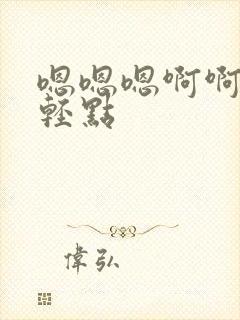 嗯嗯嗯啊啊
輕點
偉弘